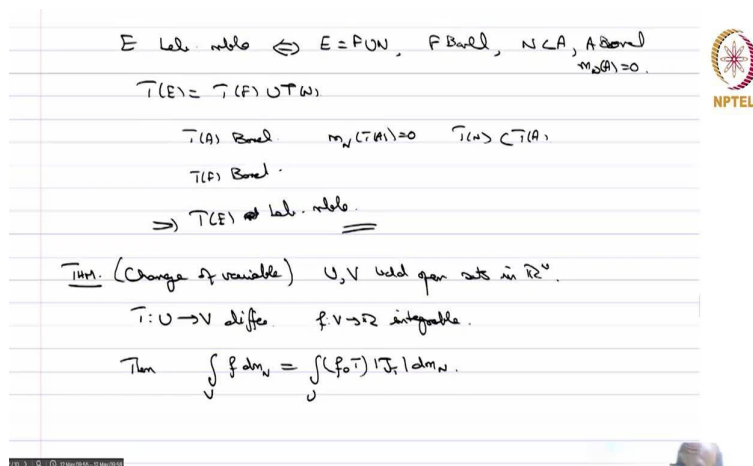 E Leb. mble ⇔ E = F ∪ N, F Borel, N ⊂ A, A Borel
m_N(A) = 0.
T(E) = T(F) ∪ T(N)
T(A) Borel. m_N(T(A)) = 0 T(N) ⊂ T(A)
T(F) Borel.
⇒ T(E) Leb. mble.
THM. (Change of variable) U, V bdd open sets in ℝᴺ.
T: U → V diffeo. f: V → ℝ integrable.
Then ∫_V f dm_N = ∫_U (f∘T) |J_T| dm_N.
NPTEL